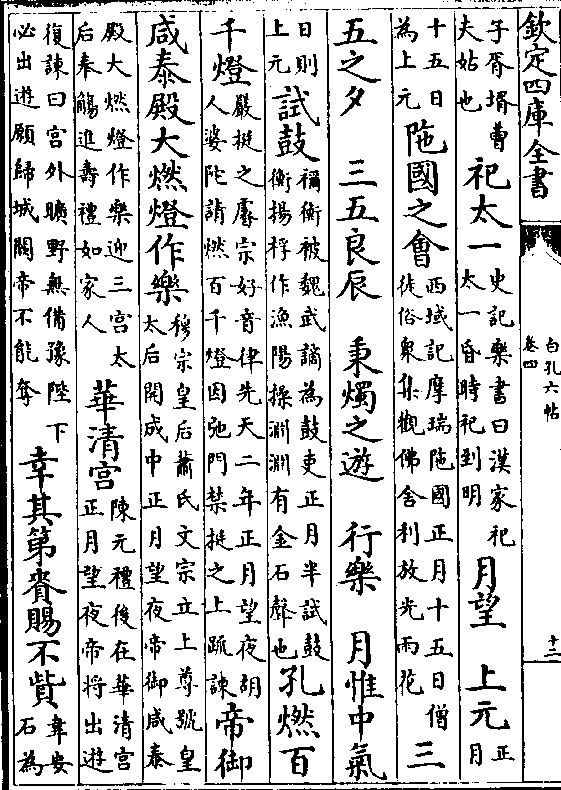 欽定四庫全書
白孔六帖
卷四
十二
子胥壻曹
夫姑也
祀太一
史記樂書曰漢家祀
太一昏時祀到明
月望 上元
正
月
十五日
為上元
陁國之會
西域記摩瑞陁國正月十五日僧
徒俗衆集觀佛舍利放光雨花
三
五之夕 三五良辰 秉燭之遊 行樂 月惟中氣
日則
上元
試鼓
禰衡被魏武謫為鼓吏正月半試鼓
衡揚桴作漁陽摻淵淵有金石聲也
孔燃百
千燈
嚴挺之睿宗好音律先天二年正月望夜胡
人婆陀請燃百千燈因弛門禁挺之上疏諫
帝御
咸泰殿大燃燈作樂
穆宗皇后蕭氏文宗立上尊號皇
太后開成中正月望夜帝御咸泰
殿大燃燈作樂迎三宮太
后奉觴進壽禮如家人
華清宮
陳元禮後在華清宮
正月望夜帝將出遊
復諫曰宮外曠野無備豫陛下
必出遊願歸城闕帝不能奪
幸其第賚賜不貲
韋安
石為